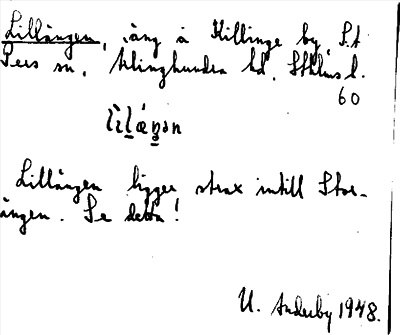 Lillängen, äng å Killinge by, S:t
Pers sn, Seminghundra hd, Sthlms l.
60
lìlǽŋən
Lillängen ligger strax intill Stor-
ängen. Se detta!
U. Anderby 1948.